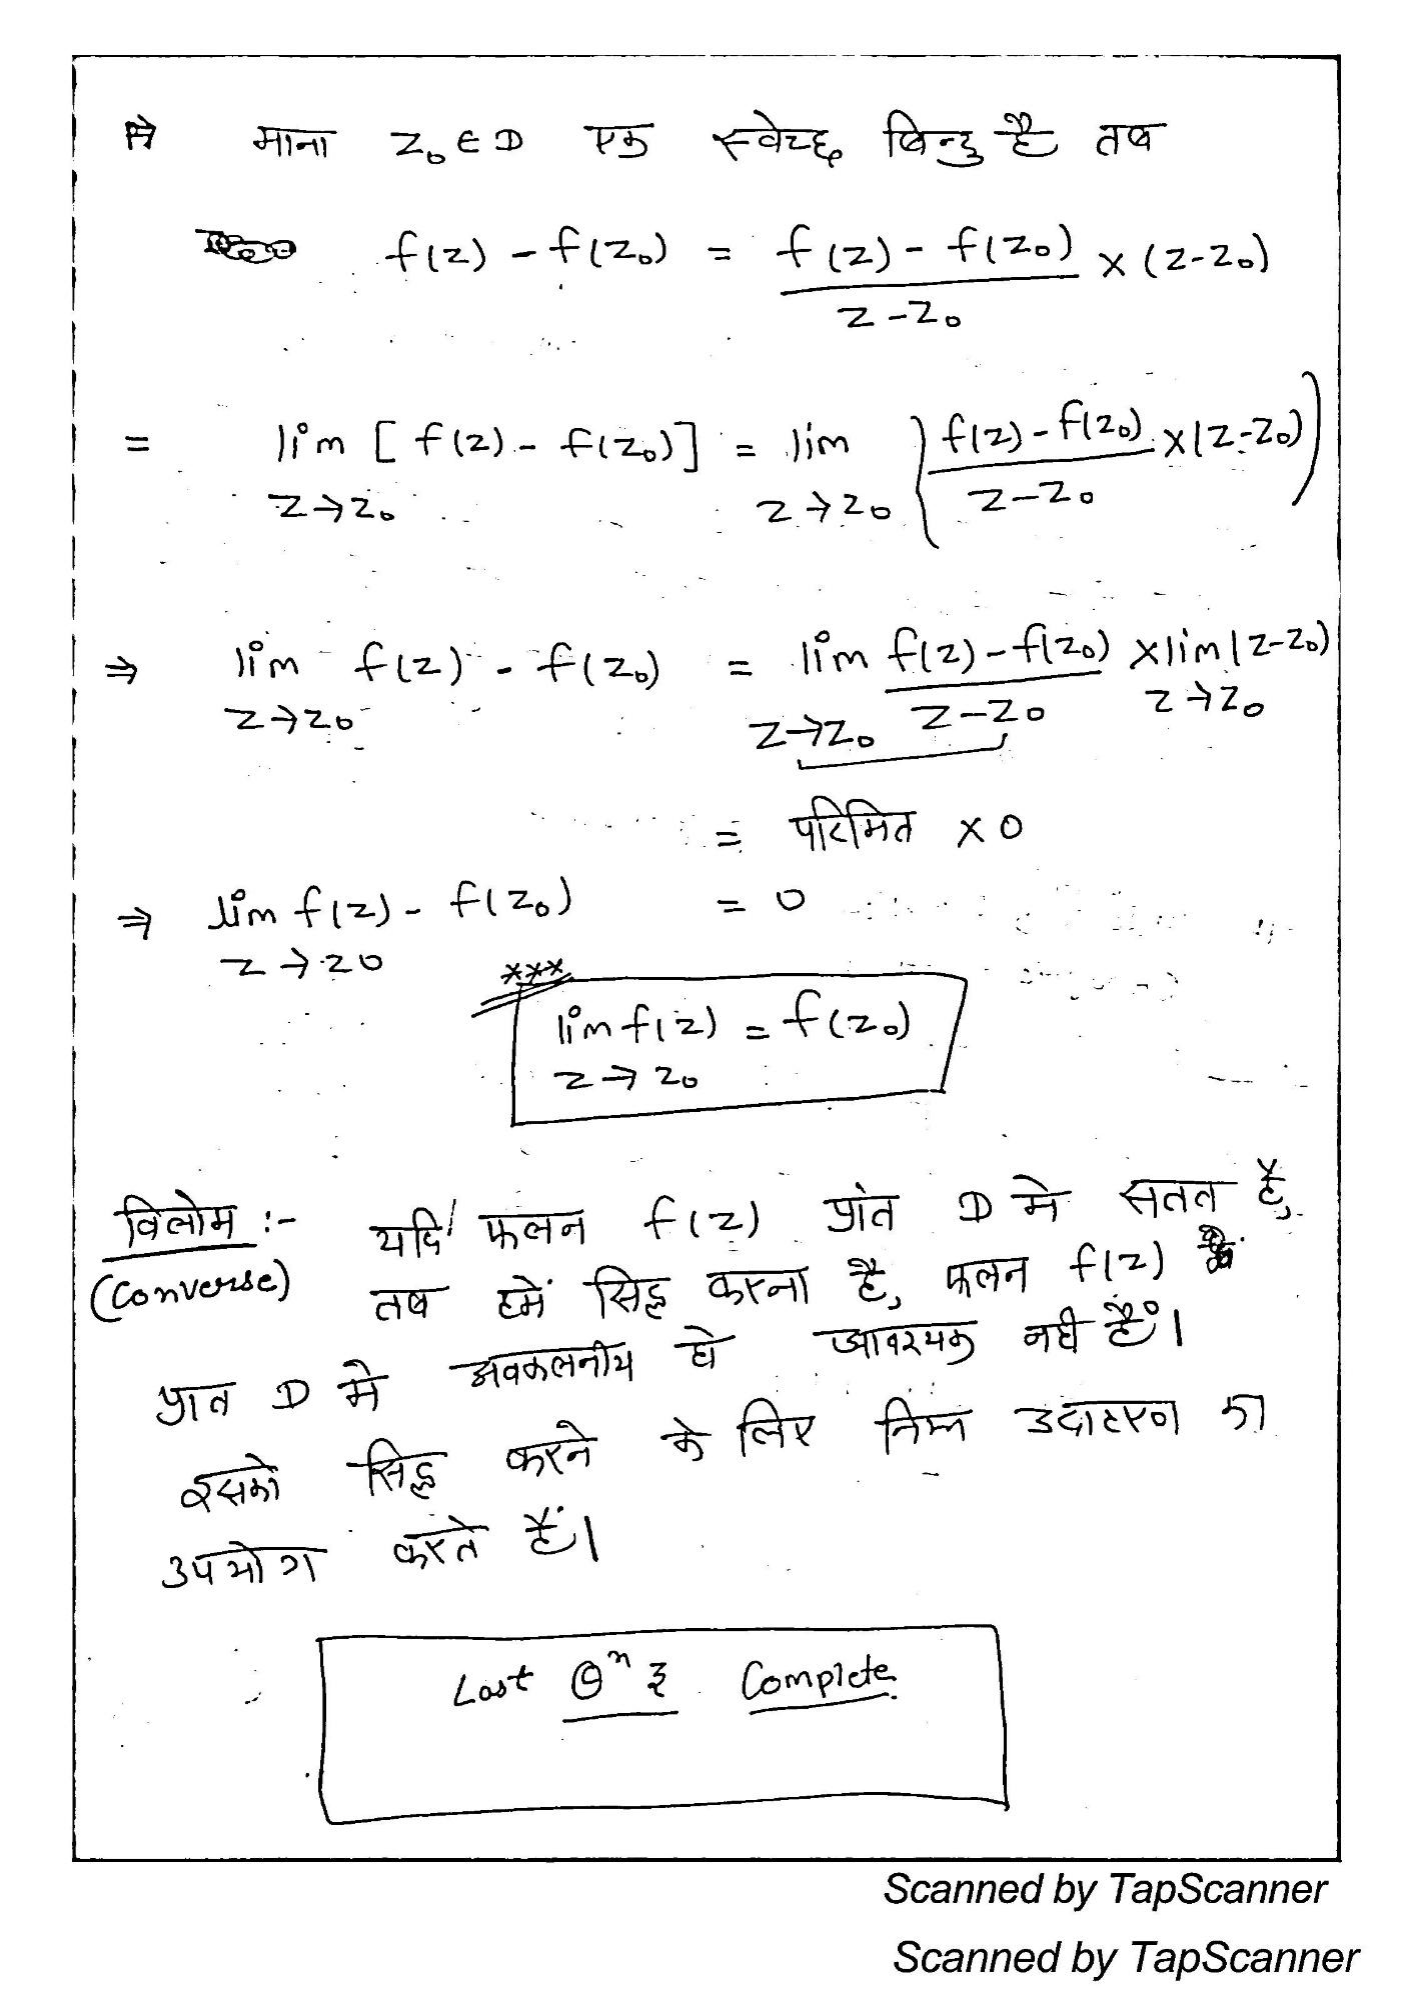 माना z₀ ∈ D एक स्वेच्छ बिन्दु है तब
f(z) - f(z₀) = \frac{f(z) - f(z₀)}{z - z₀} × (z - z₀)
= lim_{z→z₀} [f(z) - f(z₀)] = lim_{z→z₀} { \frac{f(z) - f(z₀)}{z - z₀} × (z - z₀) )
⇒ lim_{z→z₀} f(z) - f(z₀) = lim_{z→z₀} \frac{f(z) - f(z₀)}{z - z₀} × lim_{z→z₀} (z - z₀)
= परिमित × 0
⇒ lim_{z→z0} f(z) - f(z₀) = 0
***
lim_{z→z₀} f(z) = f(z₀)
विलोम :- यदि फलन f(z) प्रांत D मे सतत है,
(Converse) तब हमें सिद्ध करना है, फलन f(z)
प्रात D मे अवकलनीय हो आवश्यक नही है।
इसको सिद्ध करने के लिए निम्न उदाहरण का
उपयोग करते हैं।
Last Θⁿ ई Complete
Scanned by TapScanner
Scanned by TapScanner